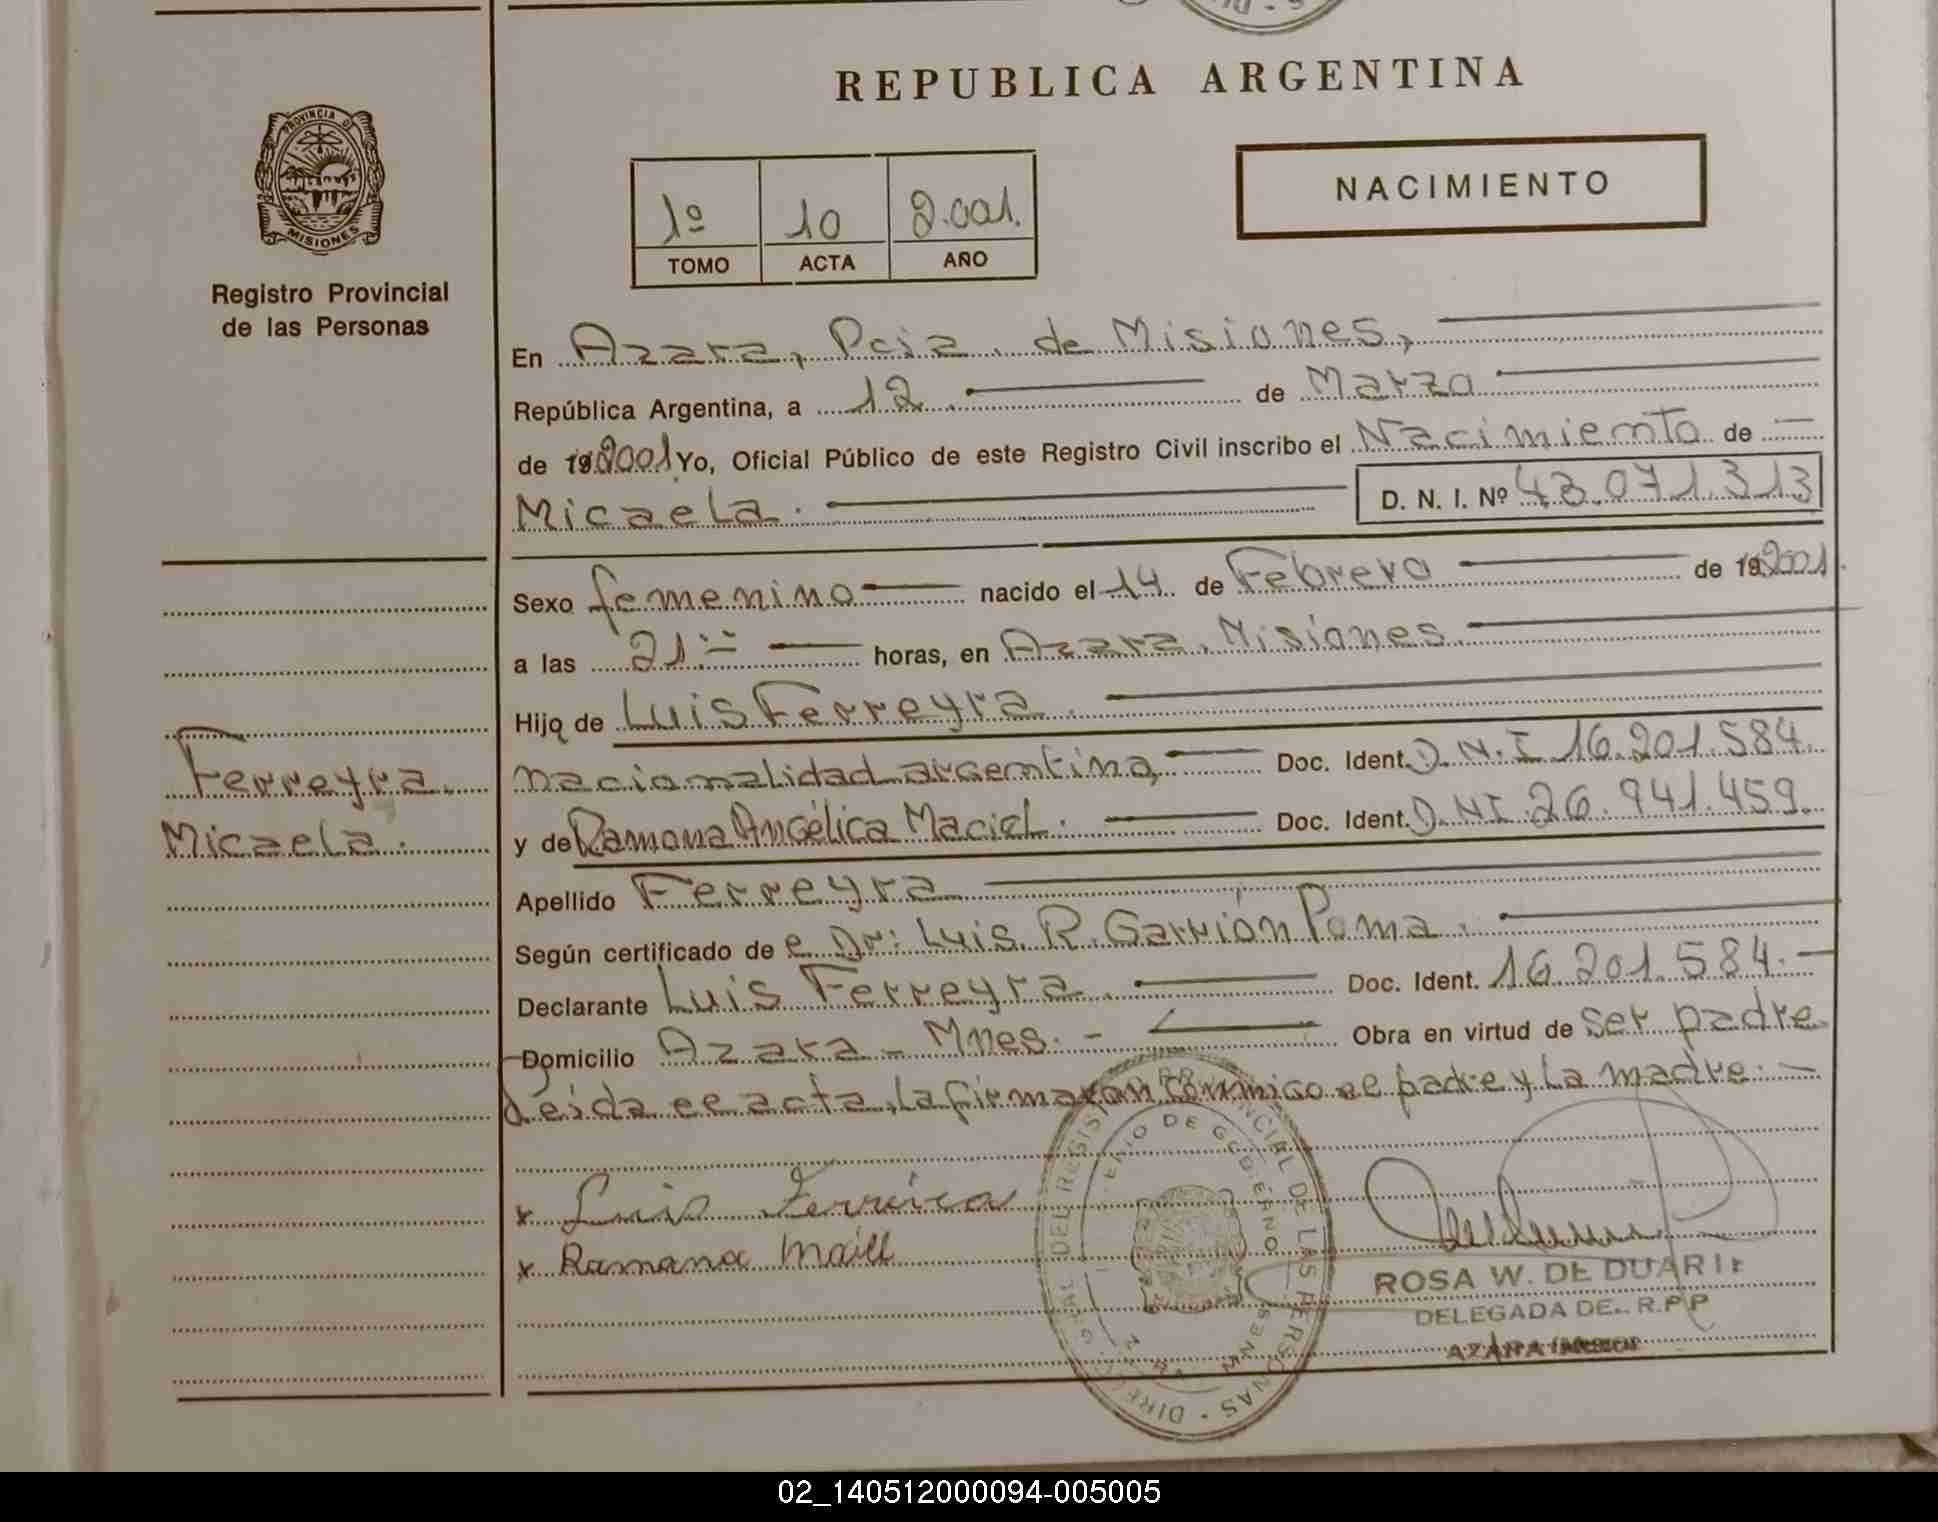 REPUBLICA ARGENTINA
PROVINCIA D
MISIONES
Registro Provincial
de las Personas
1º 10 2.001.
TOMO ACTA AÑO
NACIMIENTO
En Azara, Pcia. de Misiones,
República Argentina, a 12. de Marzo
de 19 2001 Yo, Oficial Público de este Registro Civil inscribo el Nacimiento de
Micaela. D. N. I. Nº 43.071.313
Sexo femenino nacido el 14 de Febrero de 19 2001.
a las 21:= horas, en Azara, Misiones
Hija de Luis Ferreyra.
nacionalidad argentina, Doc. Ident. D.N.I 16.201.584.
y de Ramona Angélica Maciel. Doc. Ident. D.NI 26.941.459.
Ferreyra
Micaela.
Apellido Ferreyra
Según certificado de e Dr: Luis R. Garrión Poma.
Declarante Luis Ferreyra. Doc. Ident. 16.201.584.-
Domicilio Azara - Mnes. - Obra en virtud de ser padre
Leida el acta, la firmaran conmigo el padre y la madre: -
x Luis Ferreira
x Ramona
DIRECC GRAL DEL REGISTRO PROVINCIAL DE LAS PERSONAS
DE GOBIERNO
ROSA W. DE DUARTE
DELEGADA DEL R.P.P
AZARA
02_140512000094-005005